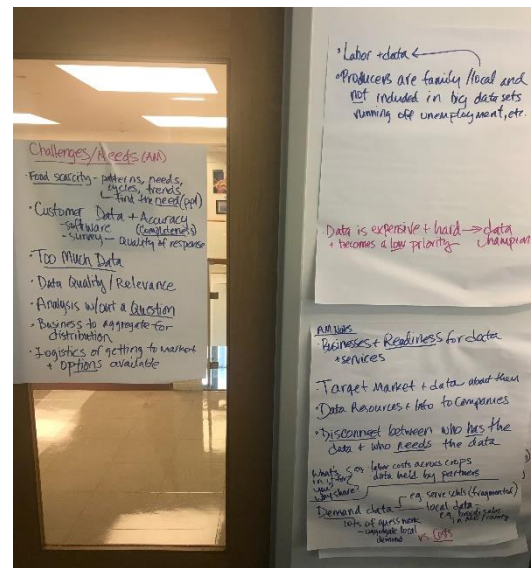 Challenges/Needs (AM)
• Food scarcity - patterns, needs,
cycles, trends
find the need (ppl)
• Customer Data + Accuracy
- software (Completeness)
- survey - Quality of response
• Too Much Data
• Data Quality / Relevance
• Analysis w/out a Question
• Business to aggregate for
distribution
• Logistics of getting to market
+ options available
• Labor + data
• Producers are family/local and
not included in big data sets
running off unemployment, etc.
Data is expensive + hard → data
+ becomes a low priority champion
AM Notes
• Businesses + Readiness for data
+ services
Target Market + data about them
• Data Resources + Info to Companies
• Disconnect between who has the
data + who needs the data
What's
in it for
you?
Why share?
labor costs across crops
data held by partners
Demand data
(fragmented)
local data
lots of guess work
- aggregate local
demand
vs. Costs